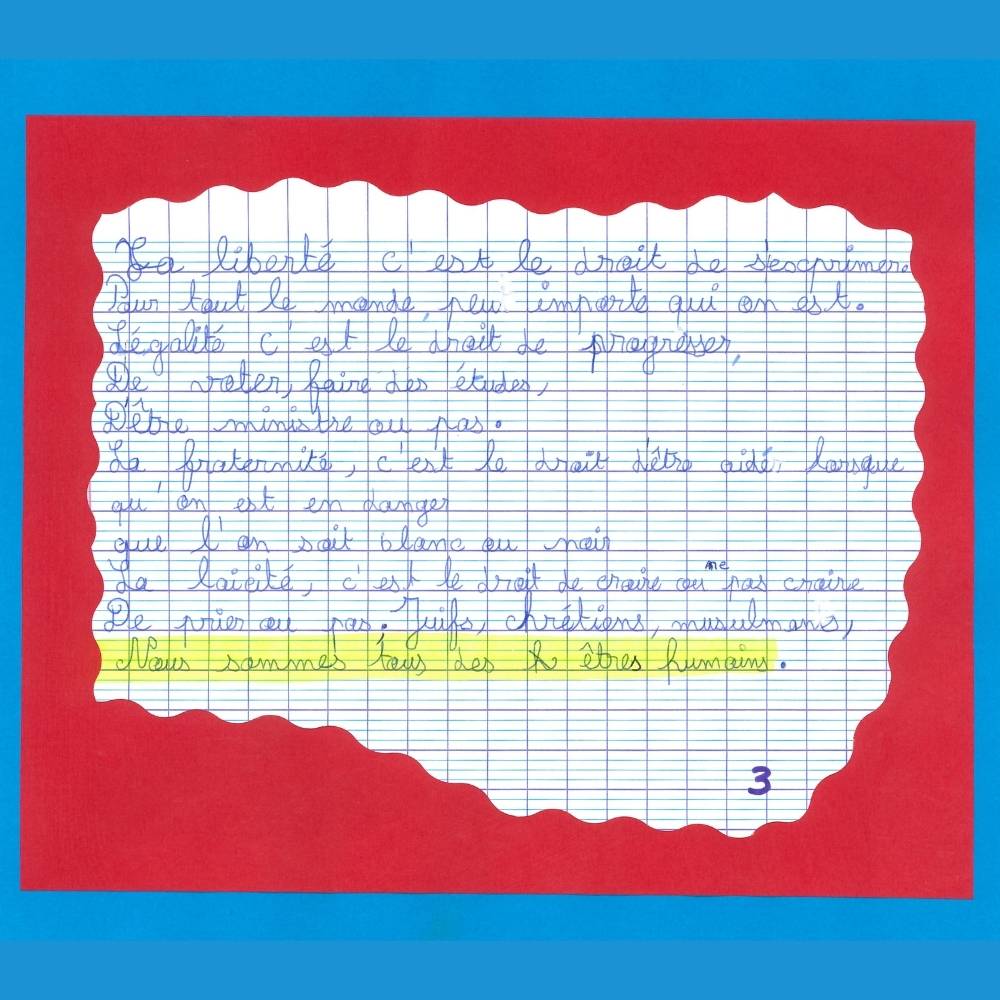 La liberté c'est le droit de s'exprimer
Pour tout le monde, peu importe qui on est.
L'égalité c'est le droit de progresser,
De voter, faire des études,
D'être ministre ou pas.
La fraternité, c'est le droit d'être aidé, lorsque
qu'on est en danger
que l'on soit blanc ou noir
La laicité, c'est le droit de croire ou ne pas croire
De prier ou pas. Juifs, chrétiens, musulmans,
Nous sommes tous des êtres humains.
3